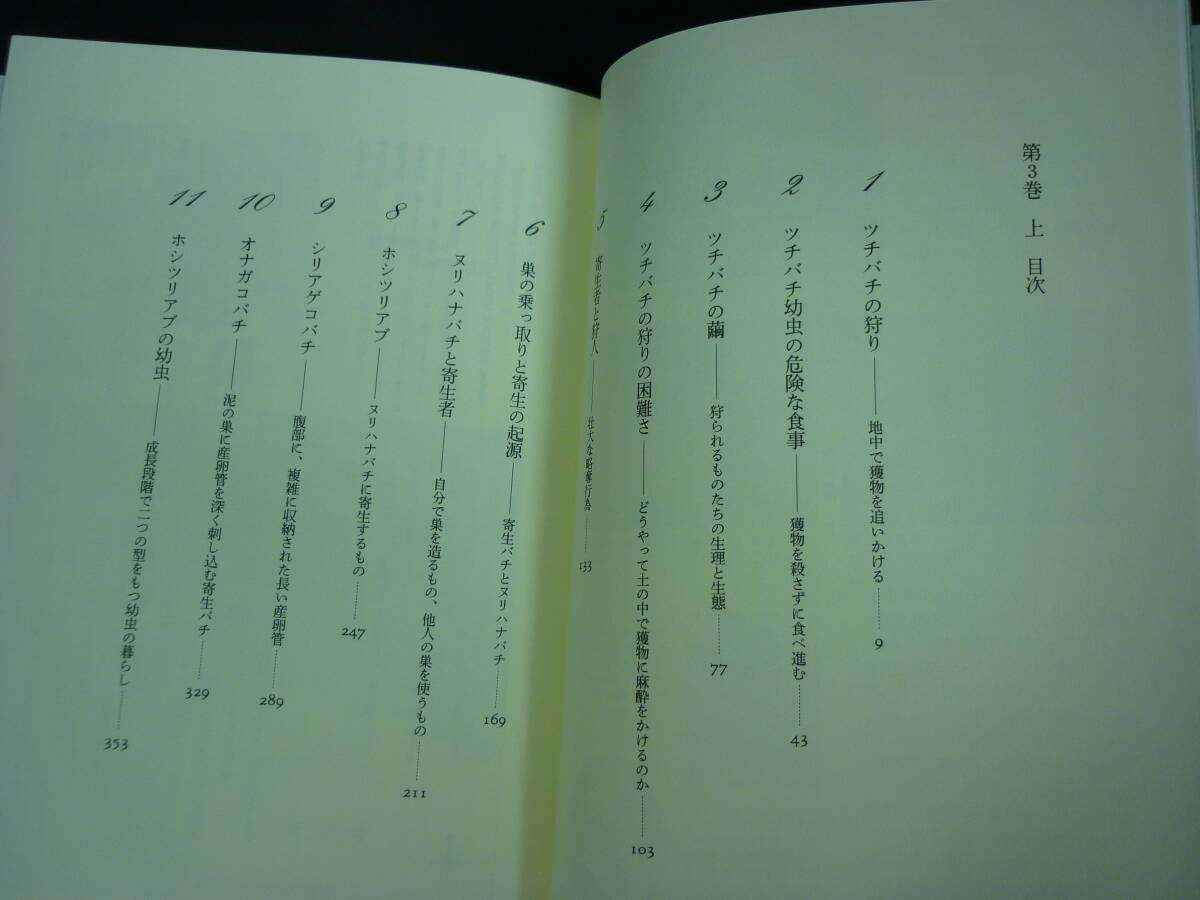 第3巻 上 目次
1 ツチバチの狩り――地中で獲物を追いかける………9
2 ツチバチ幼虫の危険な食事――獲物を殺さずに食べ進む………43
3 ツチバチの繭――狩られるものたちの生理と生態………77
4 ツチバチの狩りの困難さ――どうやって土の中で獲物に麻酔をかけるのか………103
5 寄生者と狩人――壮大な略奪行為………133
6 巣の乗っ取りと寄生の起源――寄生バチとヌリハナバチ………169
7 ヌリハナバチと寄生者――自分で巣を造るもの、他人の巣を使うもの………211
8 ホシツリアブ――ヌリハナバチに寄生するもの………247
9 シリアゲコバチ――腹部に、複雑に収納された長い産卵管………289
10 オナガコバチ――泥の巣に産卵管を深く刺し込む寄生バチ………329
11 ホシツリアブの幼虫――成長段階で二つの型をもつ幼虫の暮らし………353